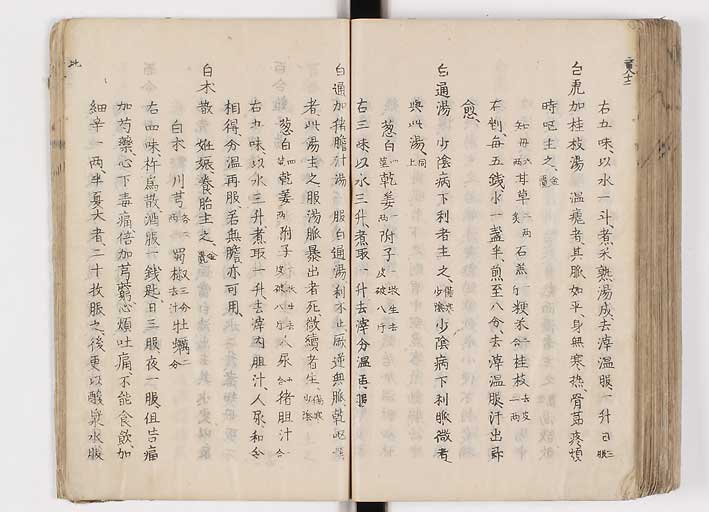 右五味以水一斗煮米熟湯成去滓温服一升日三服
白虎加桂枝湯 温瘧者其脈如平身無寒热骨節疼煩
時呕主之金匱
知母六両甘草二両炙石羔斤粳米合桂枝去皮三両
右剉每五銭水一盞半煎至八分去滓温服汗出即
愈
白通湯 少陰病下利者主之傷寒少陰少陰病下利脈微者
與此湯同上
葱白四茎乾姜一両附子一枚生去皮破八片
右三味以水三升煮取一升去滓分温再服
白通加猪膽汁湯 服白通湯利不止厥逆無脈乾呕煩
者此湯主之服湯脈暴出者死微續者生傷寒少陰
葱白四茎乾姜一両附子一枚生去皮破八片人尿五合猪胆汁一合
右五味以水三升煮取一升去滓内胆汁人尿和令
相得分温再服若無膽亦可用
白木散 妊娠養胎主之金匱
白木川芎各二両蜀椒三分去汁牡蠣二分
右四味杵為散酒服一銭匙日三服夜一服但苦痛
加芍藥心下毒痛倍加芎藭心煩吐痛不能食飲加
細辛一両半夏大者二十枚服之後更以酸泉水服